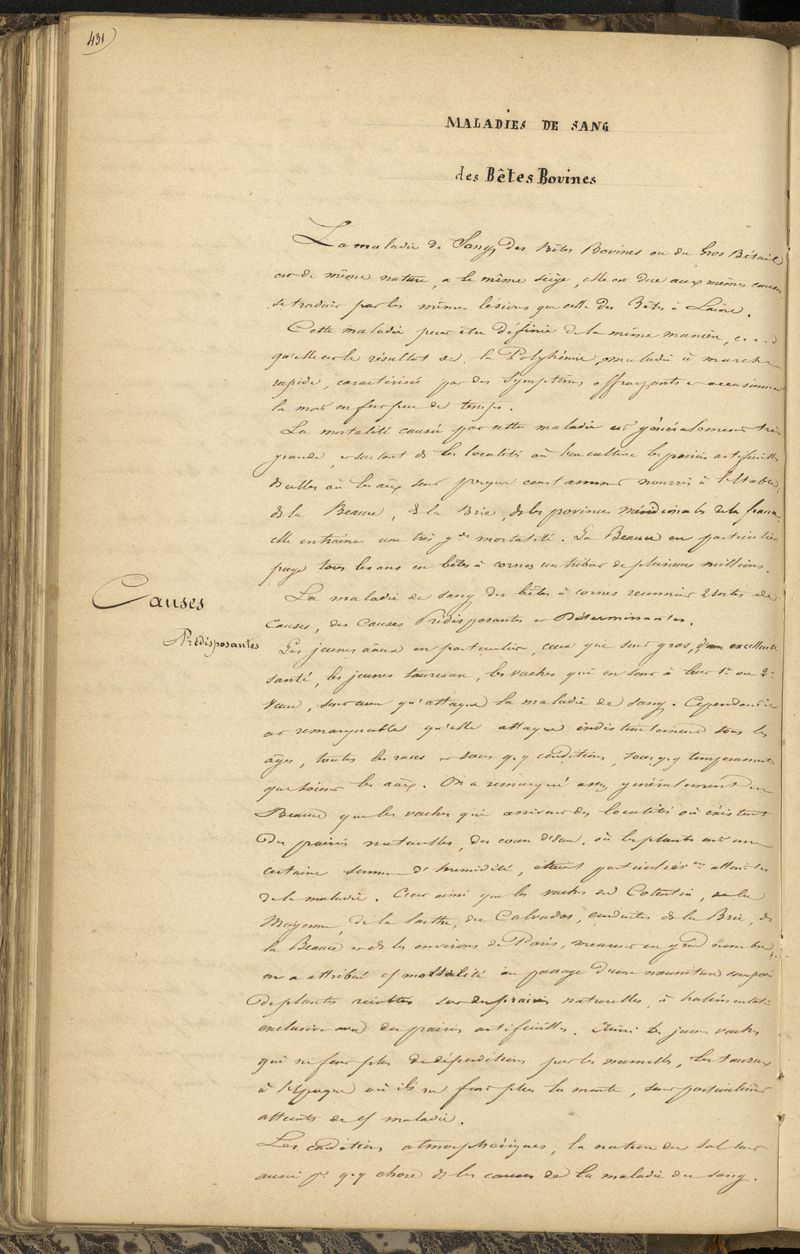 431
MALADIES DE SANG
des Bêtes Bovines
La maladie de Sang des Bêtes Bovines ou du Gros Bétail
est de même nature, a le même siège, elle est due aux mêmes causes
se traduit par les mêmes lésions que celle des Bêtes à Laine.
Cette maladie peut être définie de la même manière, c. a. d
qu'elle est le résultat de la Polyhémie, maladie à marche
rapide, caractérisée par des Symptômes effrayants et occasionnant
la mort en fort peu de temps.
La mortalité causée par cette maladie est généralement très
grande, et surtout ds les localités où l'on cultive les prairies artificielles
et celles où les aux sont presque constamment nourris à l'étable,
ds la Beauce, ds la Brie, ds les provinces méridionales de la france
elle entraine une très gde mortalité. La Beauce en particulier
paye tous les ans en bêtes à cornes un tribut de plusieurs millions.
Causes
La maladie de sang des bêtes à cornes reconnait 2 sortes de
causes, des causes Prédisposantes et Déterminantes.
Prédisposantes
Les jeunes aaux en particulier, ceux qui sont gras, d'une excellente
santé, les jeunes taureaux, les vaches qui en sont à leur 1er ou 2e
veau, sont ceux qu'attaque la maladie de sang. Cependant il
est remarquable qu'elle attaque indistinctement tous les
âges, toutes les races et dans qq conditions, sous qq tempéraments
que soient les aux. On a remarqué assez généralement en
Beauce que les vaches qui arrivent des localités où existent
des prairies naturelles, des cours d'eau, où les plantes ont une
certaine somme d'humidité, étaient particulièrement atteintes
de la maladie. C'est ainsi que les vaches du Cotentin, de la
Mayenne, de la Sarthe, du Calvados, conduites ds la Brie, ds
la Beauce et ds les environs de Paris, meurent en gd nombre,
on a attribué cf mortalité au passage d'une nourriture composée
de plantes récoltées sur des prairies naturelles, à l'alimentation
exclusive avec des prairies artificielles. Ainsi les jeunes vaches
qui ne font plus de déperditions par les mamelles, les taureaux
à l'époque où ils ne font plus la monte, sont particulièrement
atteints de cf maladie.
Les conditions atmosphériques, la nature du sol sont
aussi pr qq chose ds les causes de la maladie du sang.